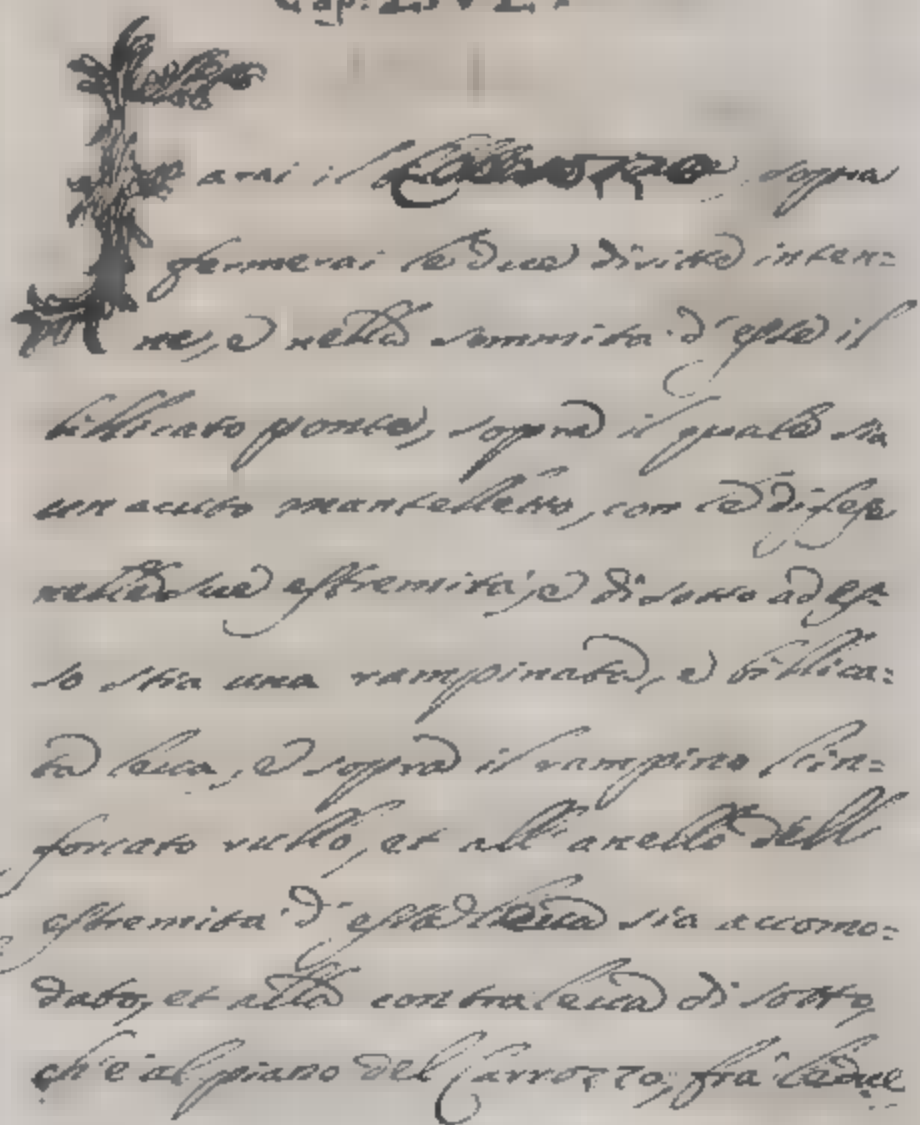 Cap. LXVI.
Farai il Carrozzo, sopra
fermerai le due diritte inten=
ne, e nella sommita d'esse il
billicato ponte, sopra il quale sia
un acuto mantelletto, con le difese
nelle due estremita, e di sotto ad es=
so stia una rampinata, e billica=
ta leua, e sopra il rampino l'in=
forcato rullo, et all'anello dell
estremita d'essa leua sia accomo=
dato, et alla contraleua di sotto,
ch'è al piano del Carrozzo, fra le due